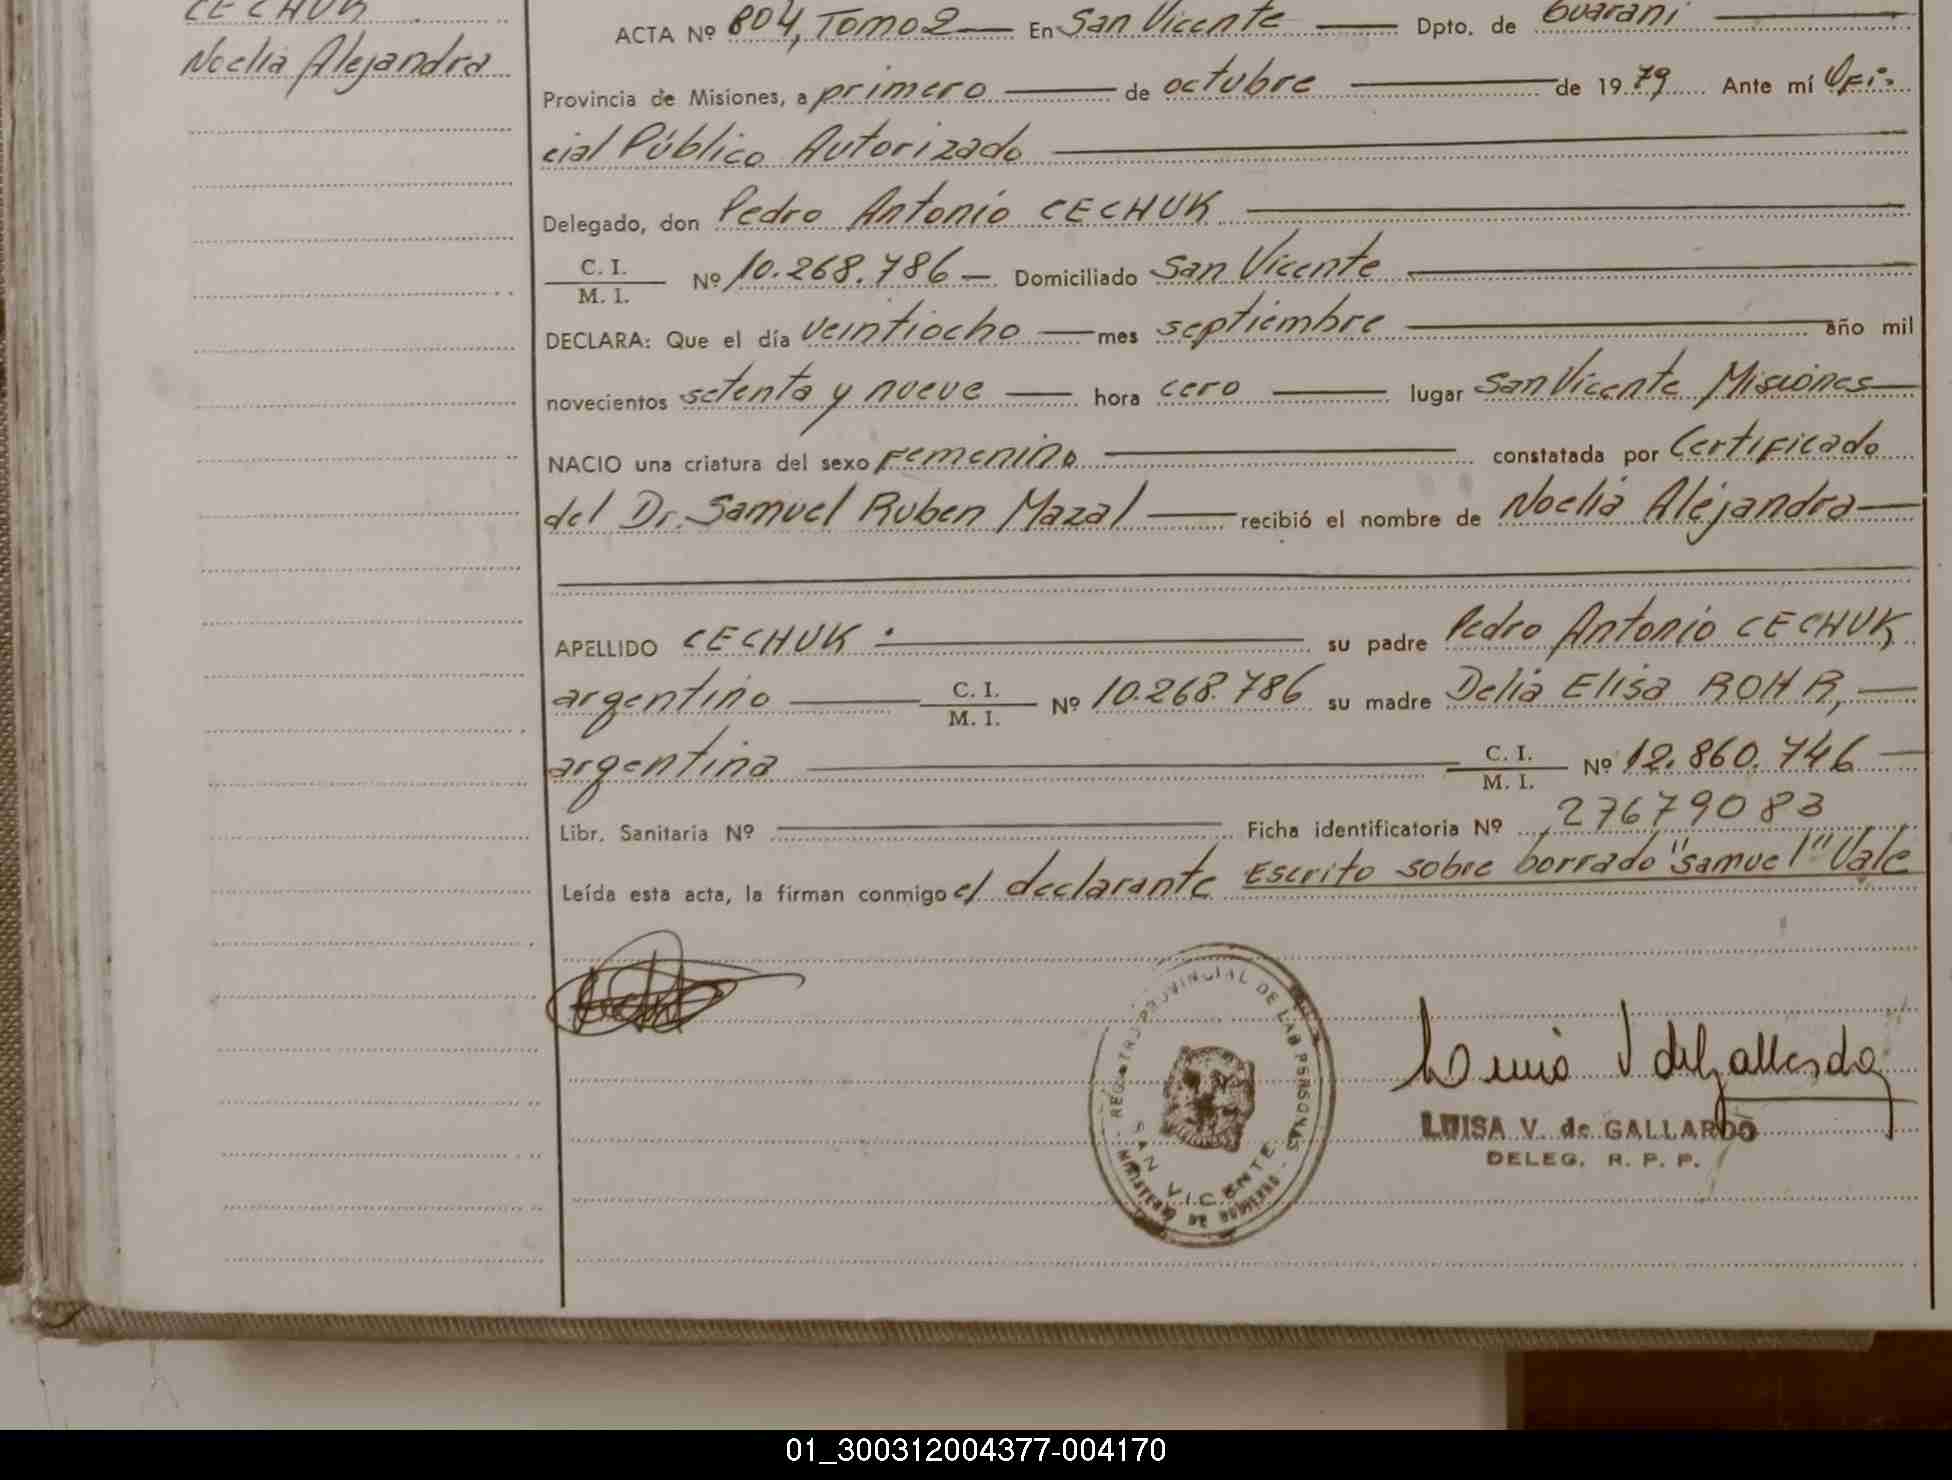 CECHUK
Noelia Alejandra
ACTA Nº 804, Tomo 2 En San Vicente Dpto. de Guaraní
Provincia de Misiones, a primero de octubre de 1979 Ante mí Ofi-
cial Público Autorizado
Delegado, don Pedro Antonio CECHUK
C. I.
M. I. Nº 10.268.786 Domiciliado San Vicente
DECLARA: Que el día veintiocho mes septiembre año mil
novecientos setenta y nueve hora cero lugar San Vicente Misiones
NACIO una criatura del sexo Femenino constatada por Certificado
del Dr. Samuel Ruben Mazal recibió el nombre de Noelia Alejandra
APELLIDO CECHUK su padre Pedro Antonio CECHUK
argentino C. I. M. I. Nº 10.268.786 su madre Delia Elisa ROHR,
argentina C. I. M. I. Nº 12.860.746
Libr. Sanitaria Nº Ficha identificatoria Nº 27679083
Leída esta acta, la firman conmigo el declarante Escrito sobre borrado "samuel" Vale
REGISTRO PROVINCIAL DE LAS PERSONAS
SAN VICENTE
MINISTERIO DE GOBIERNO
Luisa V de Gallardo
LUISA V. de GALLARDO
DELEG. R. P. P.
01_300312004377-004170